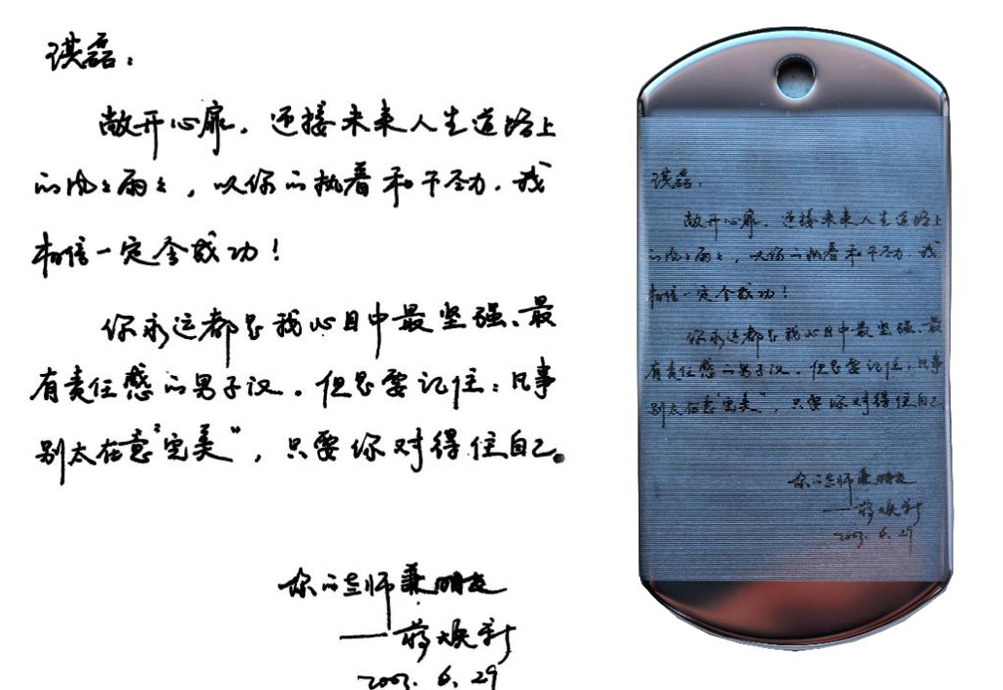 淇磊：
敞开心扉，迎接未来人生道路上
的风风雨雨，以你的执着和干劲，我
相信一定会成功！
你永远都是我心目中最坚强、最
有责任感的男子汉。但是要记住：凡事
别太在意“完美”，只要你对得住自己。
你的老师兼朋友
——蒋焕新
2003.6.29
淇磊：
敞开心扉，迎接未来人生道路上
的风风雨雨，以你的执着和干劲，我
相信一定会成功！
你永远都是我心目中最坚强、最
有责任感的男子汉。但是要记住：凡事
别太在意“完美”，只要你对得住自己
你的老师兼朋友
——蒋焕新
2003.6.29